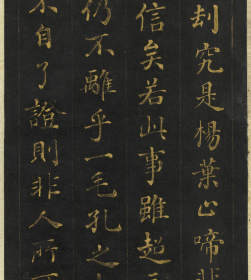 究是楊葉止啼
信矣若此事雖超
仍不離乎一毛孔之
不自了證則非人所